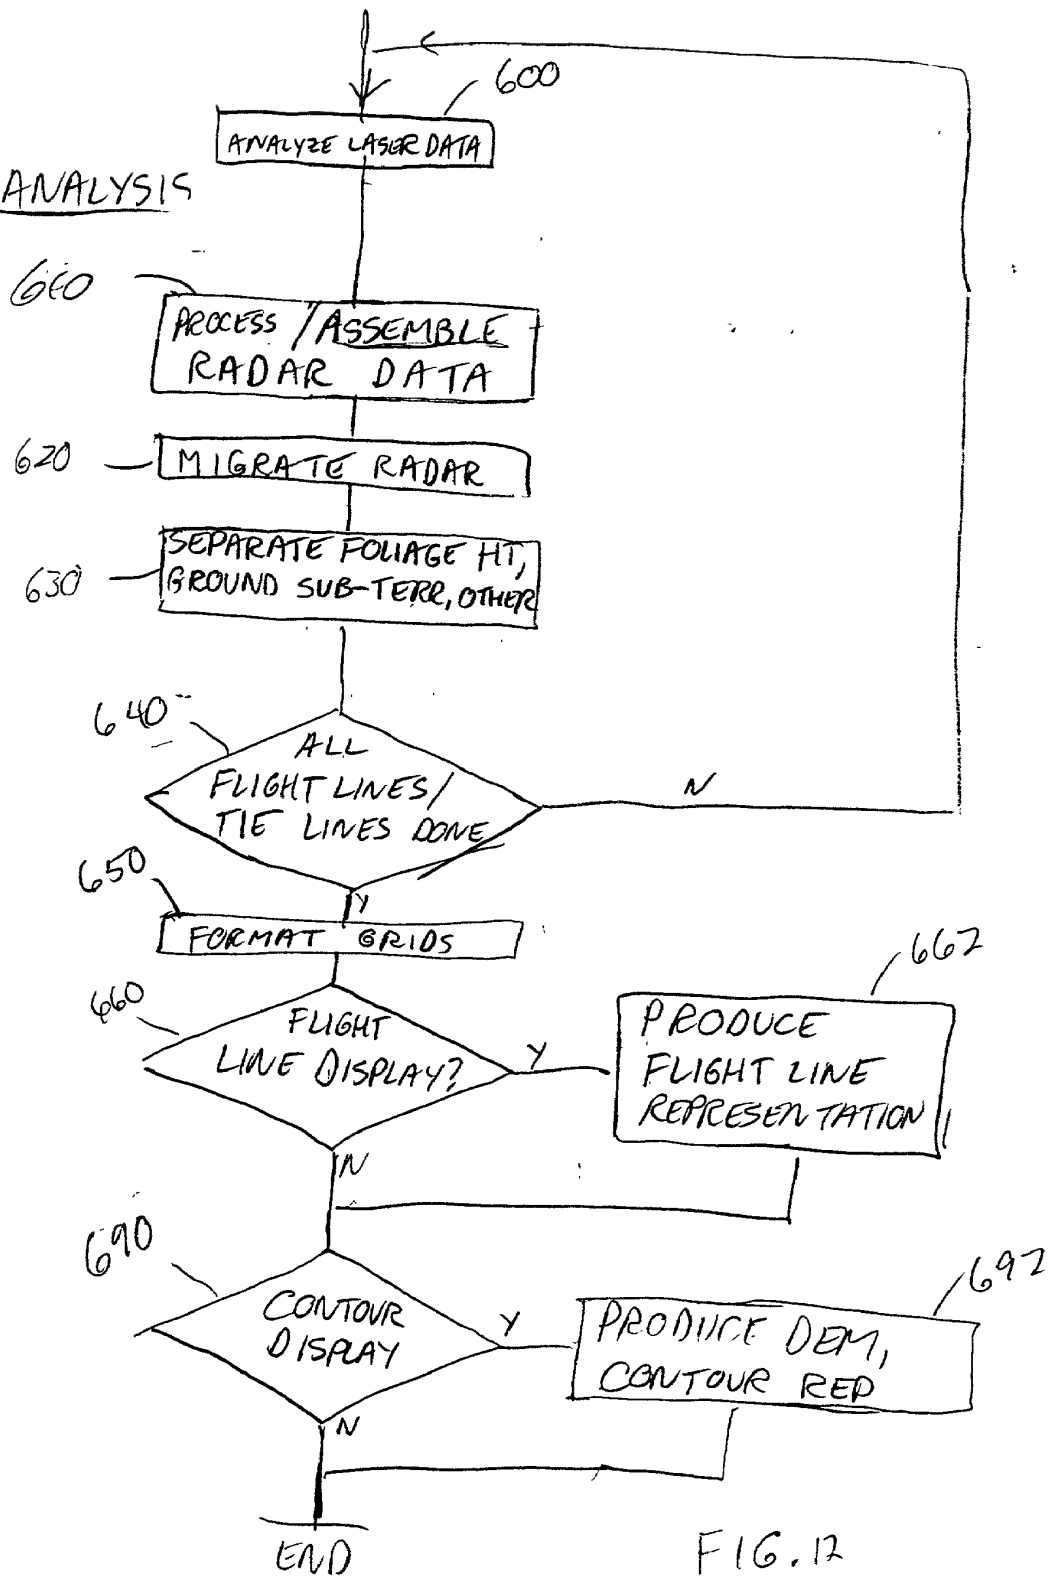 600
ANALYZE LASER DATA
ANALYSIS
PROCESS / ASSEMBLE
RADAR DATA
620
MIGRATE RADAR
SEPARATE FOLIAGE HT,
630
GROUND SUB-TERR, OTHER
640
ALL
FLIGHT LINES/
TIE LINES DONE
N
650
Y
FORMAT GRIDS
662
660
FLIGHT
LINE DISPLAY?
Y
PRODUCE
FLIGHT LINE
REPRESENTATION
N
690
692
CONTOUR
DISPLAY
Y
PRODUCE DEM,
CONTOUR REP
N
END
FIG. 12